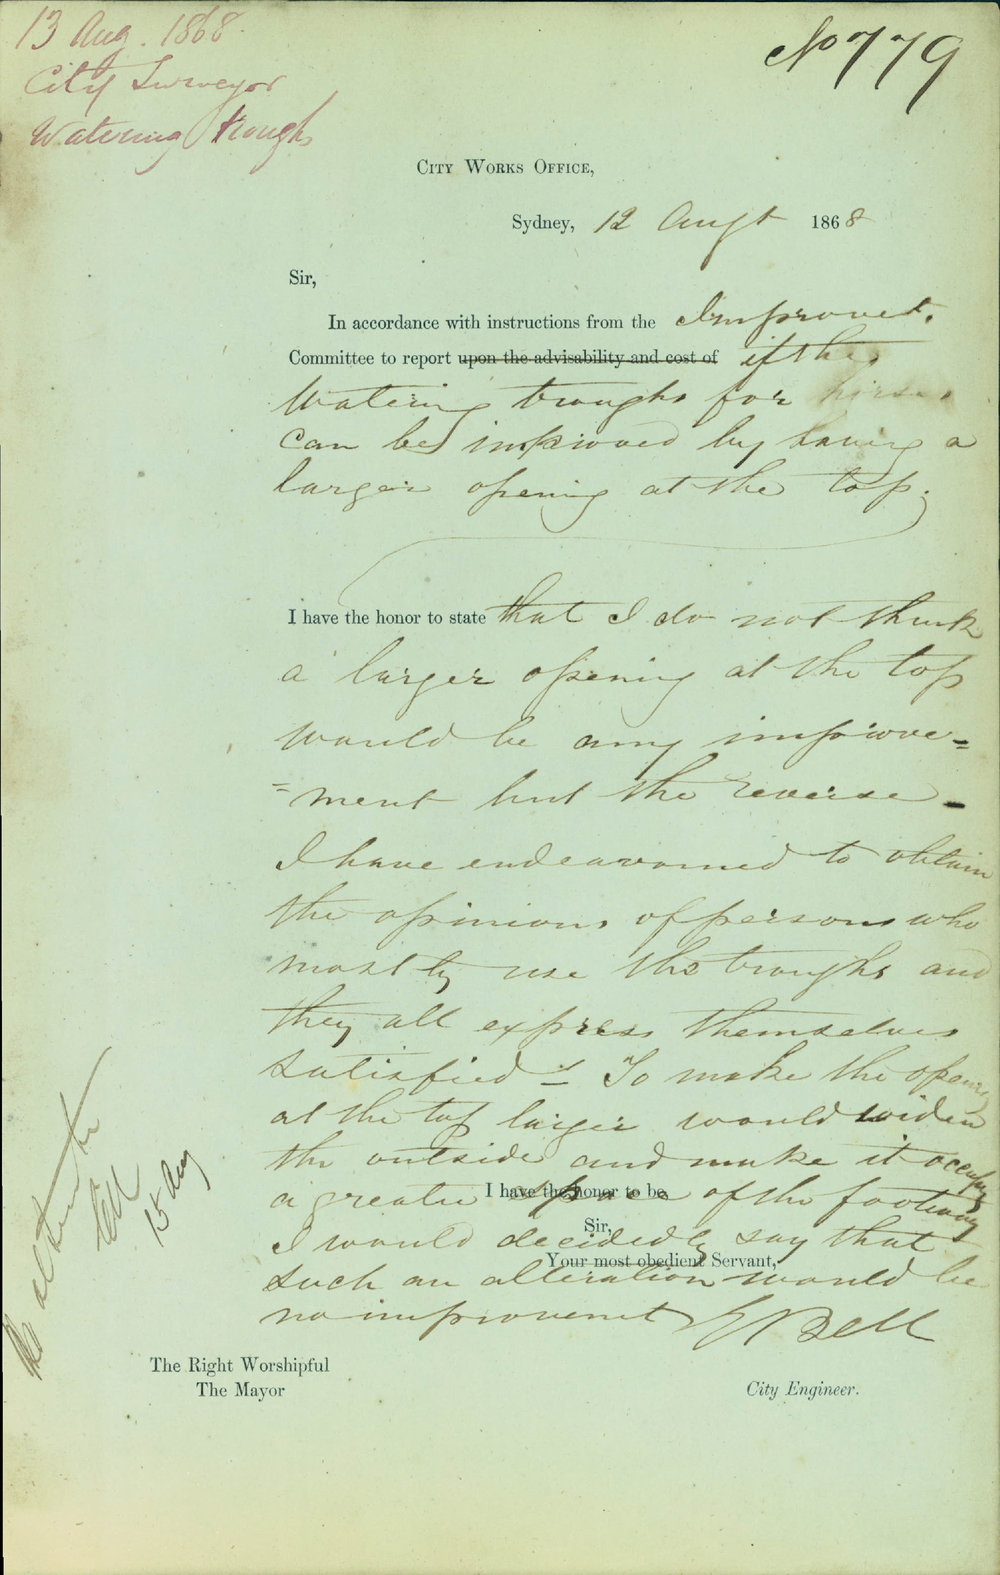 13 Aug. 1868
City Surveyor
Watering troughs
No 779
City Works Office,
Sydney, 12 Augt 1868
Sir,
In accordance with instructions from the Improvet.
Committee to report upon the advisability and cost of if the
Watering troughs for horses
can be improved by having a
larger opening at the top.
I have the honor to state that I do not think
a larger opening at the top
would be any improve=
=ment but the reverse_
I have endeavoured to obtain
the opinions of persons who
mostly use the troughs and
they all express themselves
satisfied_ To make the opening
at the top larger would widen
the outside and make it occupy
a greater space of the footway
I have the honor to be
I would decidedly say that
Sir,
Your most obedient Servant,
such an alteration would be
no improvement E Bell
The Right Worshipful
The Mayor
City Engineer.
No alteration
15 Aug